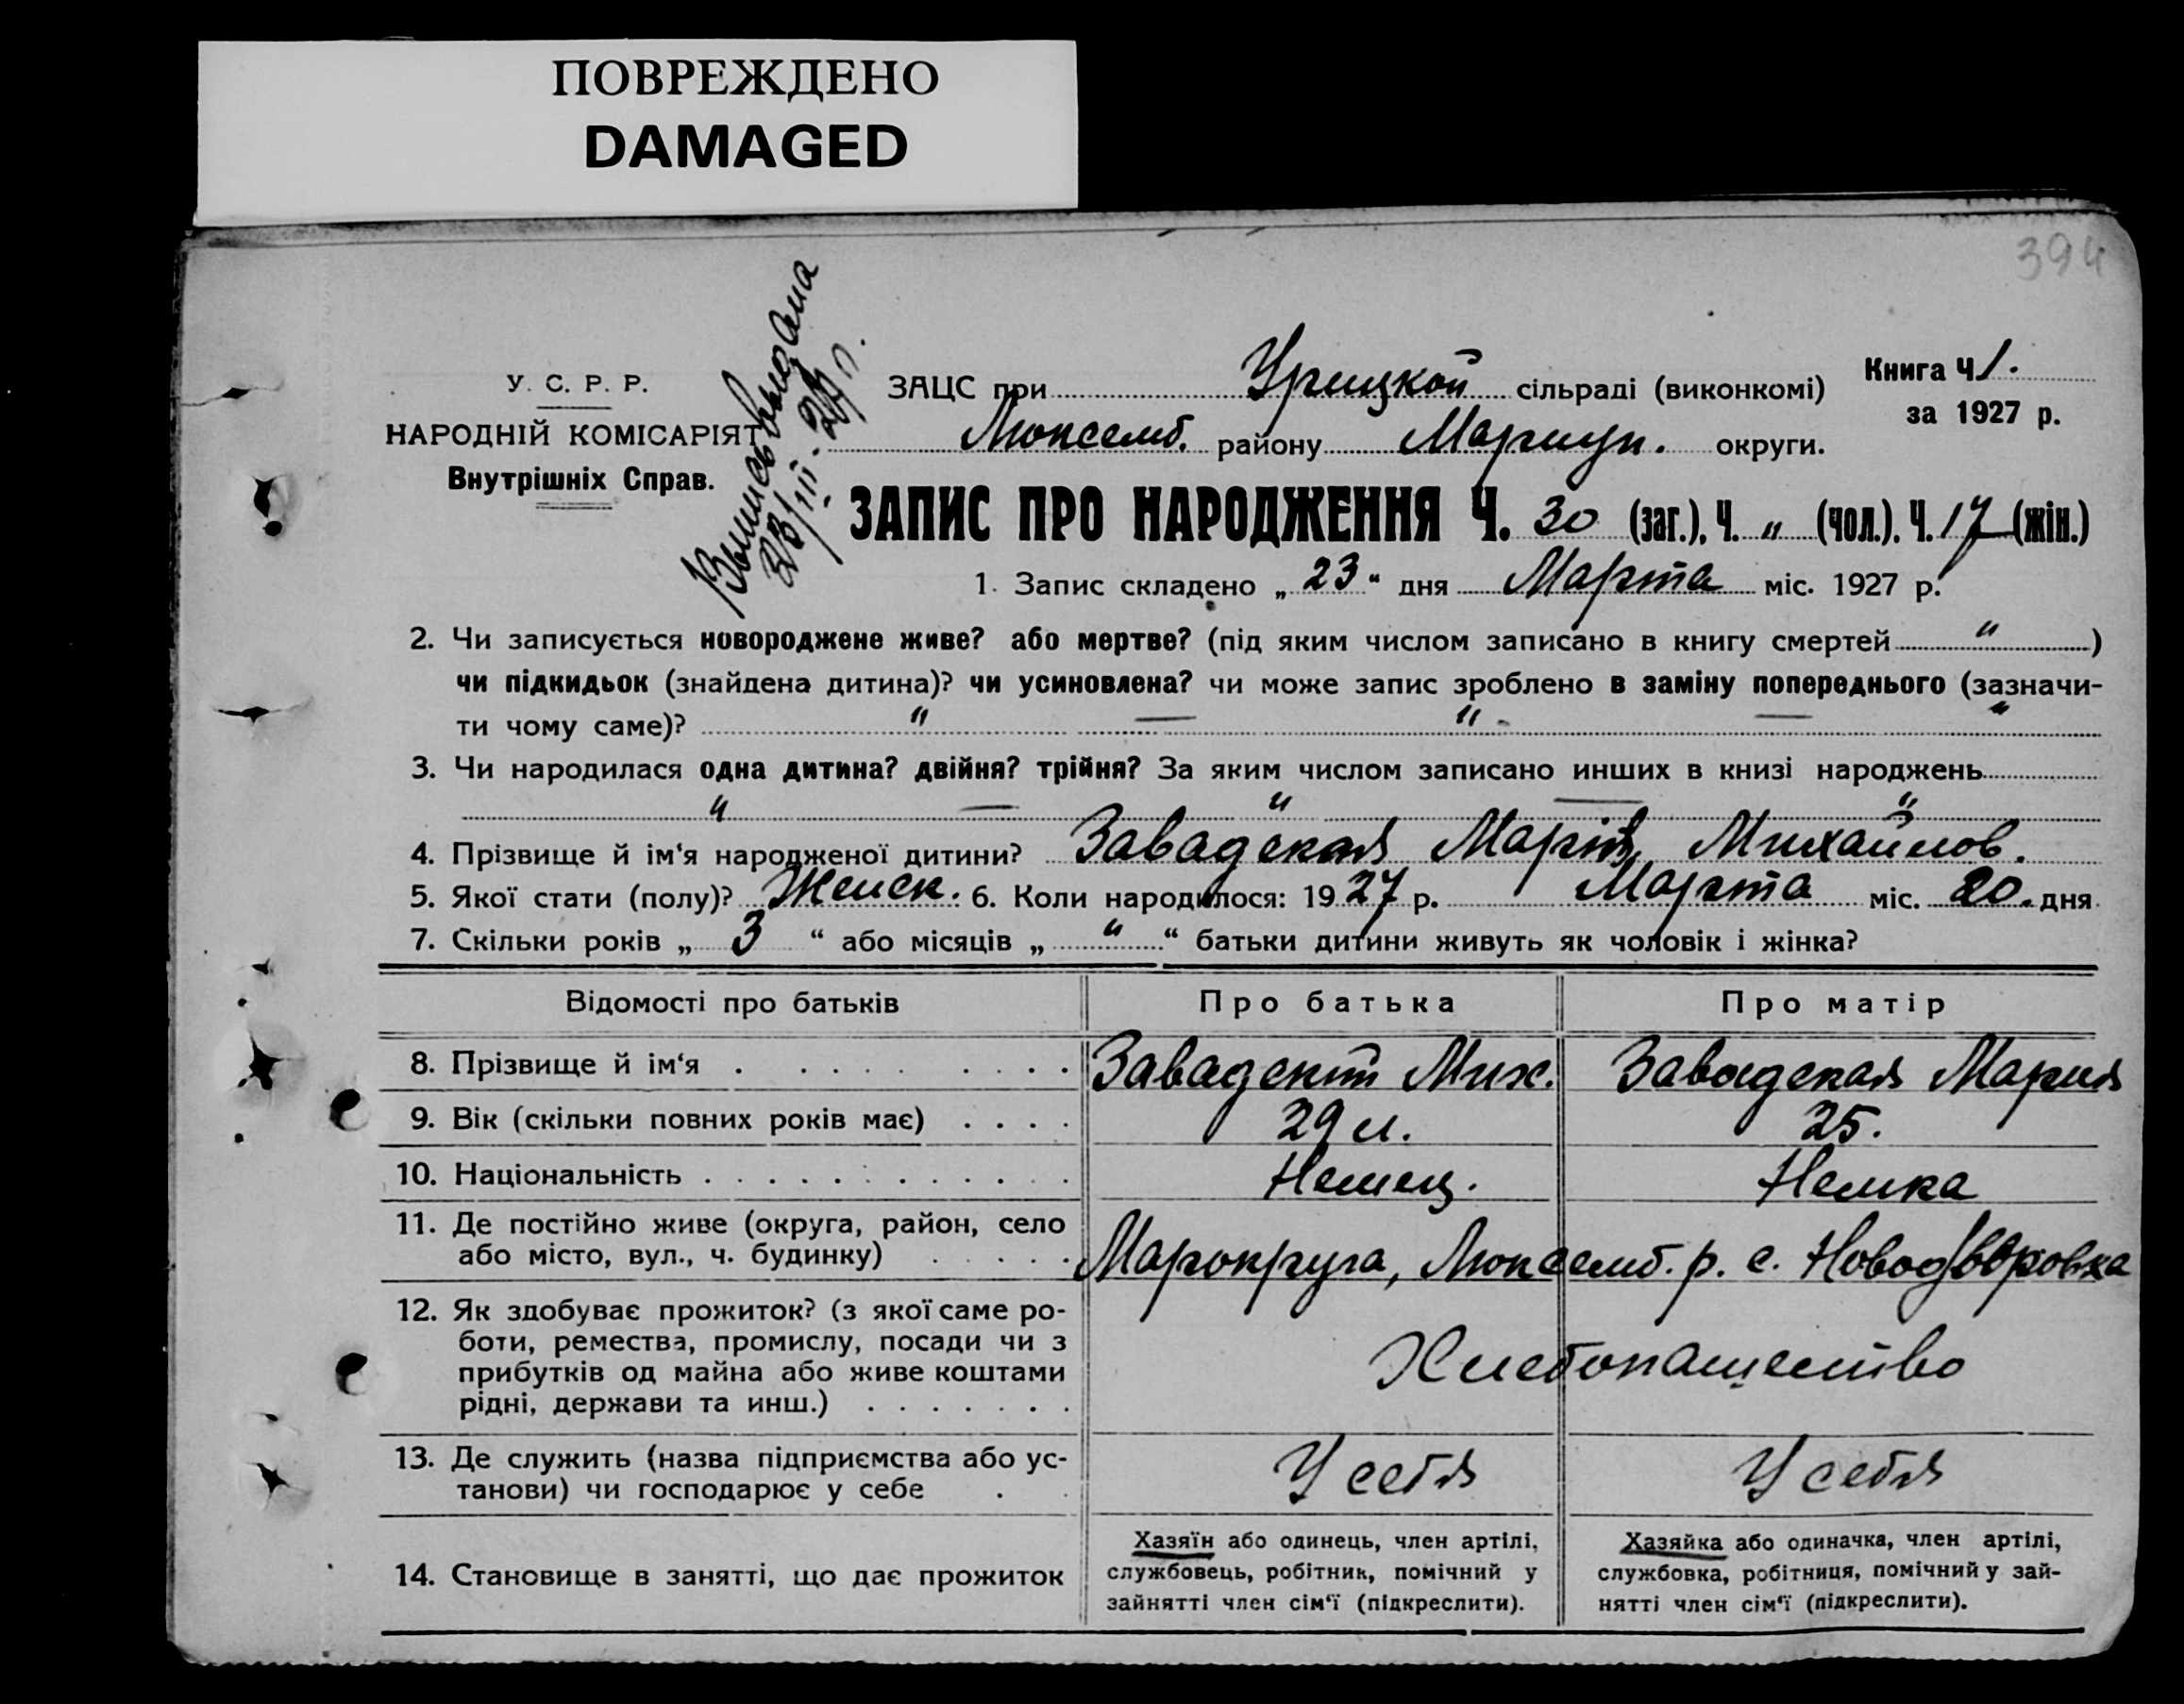 ПОВРЕЖДЕНО
DAMAGED
394
Выпись выдана
23/III
У. С. Р. Р.
НАРОДНІЙ КОМІСАРІЯТ
Внутрішніх Справ.
ЗАЦС при Урицкой сільраді (виконкомі)
Люксемб. району Мариуп. округи.
Книга Ч 1.
за 1927 р.
ЗАПИС ПРО НАРОДЖЕННЯ Ч. 30 (заг.), Ч. „ (чол.). Ч. 17 (жін.)
1. Запис складено „ 23 “ дня Марта міс. 1927 р.
2. Чи записується новороджене живе? або мертве? (під яким числом записано в книгу смертей „ )
чи підкидьок (знайдена дитина)? чи усиновлена? чи може запис зроблено в заміну попереднього (зазначи-
ти чому саме)? „ — „ — „
3. Чи народилася одна дитина? двійня? трійня? За яким числом записано инших в книзі народжень
„ — „ — „
4. Прізвище й ім‘я народженої дитини? Завадская Марія Михайлов.
5. Якої стати (полу)? Женск. 6. Коли народилося: 1927 р. Марта міс. 20. дня
7. Скільки років „ 3 “ або місяців „ „ “ батьки дитини живуть як чоловік і жінка?
Відомості про батьків Про батька Про матір
8. Прізвище й ім‘я . . . . . . . . . Завадский Мих. Завадская Мария
9. Вік (скільки повних років має) . . . . 29 л. 25.
10. Національність . . . . . . . . . . . . Немец. Немка
11. Де постійно живе (округа, район, село
або місто, вул., ч. будинку) . . . . . Марокруга, Люксемб. р. с. Новодворовка
12. Як здобуває прожиток? (з якої саме ро-
боти, ремества, промислу, посади чи з
прибутків од майна або живе коштами
рідні, держави та инш.) . . . . . . .
Хлебопашество
13. Де служить (назва підприємства або ус-
танови) чи господарює у себе .
У себя У себя
14. Становище в занятті, що дає прожиток
Хазяїн або одинець, член артілі,
службовець, робітник, помічний у
зайнятті член сім‘ї (підкреслити).
Хазяйка або одиначка, член артілі,
службовка, робітниця, помічний у зай-
нятті член сім‘ї (підкреслити).